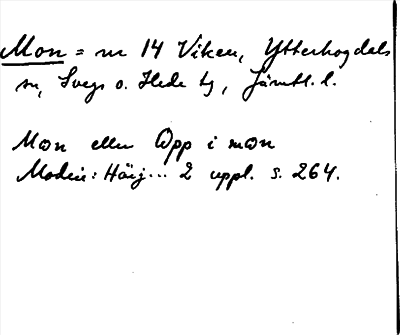 Mon = nr 14 Viken, Ytterhogdals
sn, Svegs o. Hede tg, Jämtl. l.
Mon eller Opp i mon
Modin: Härj... 2 uppl. s. 264.